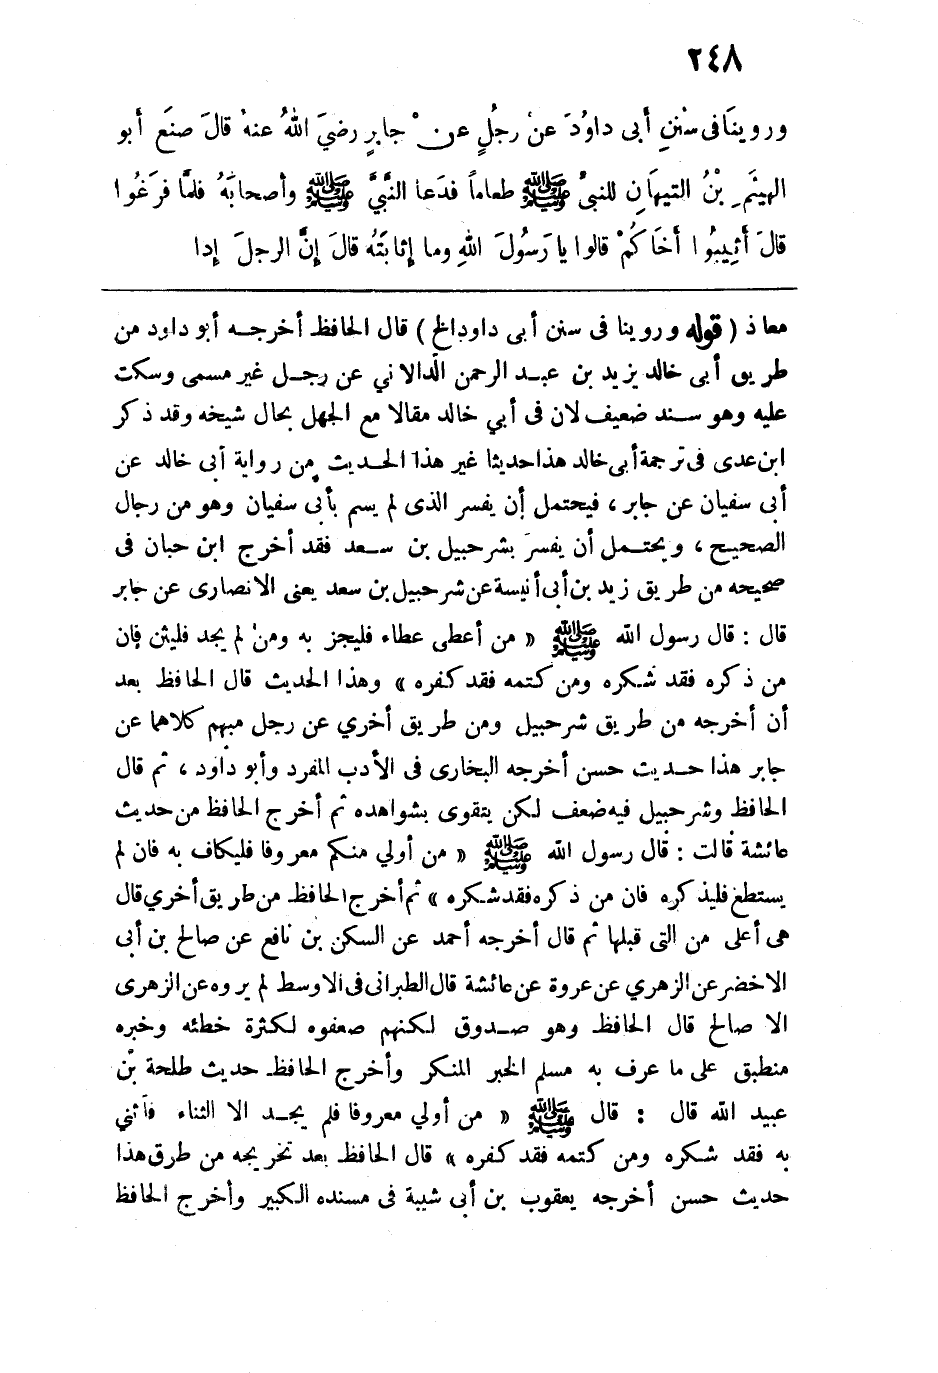 ٢٤٨
وروينَا فى سنَنِ أبى داوُدَ عنْ رجُلٍ عنْ جابرٍ رضيَ اللهُ عنهُ قالَ صنَعَ أبو
الهيثَمِ بْنُ التيهَانِ للنبىِّ ﷺ طعاماً فدَعا النَّبيَّ ﷺ وأصحابَهُ فلمَّا فرَغُوا
قالَ أثِيبُوا أخَا كُمْ قالوا يا رَسُولَ اللهِ وما إثابَتُه قالَ إنَّ الرجلَ إذا
معاذ ( قوله وروينا فى سنن أبى داود الخ ) قال الحافظ أخرجه أبو داود من
طريق أبى خالد يزيد بن عبد الرحمن الدالانى عن رجل غير مسمى وسكت
عليه وهو سند ضعيف لان فى أبي خالد مقالا مع الجهل بحال شيخه وقد ذكر
ابن عدى فى ترجمة أبى خالد هذا حديثا غير هذا الحديث من رواية أبى خالد عن
أبى سفيان عن جابر ، فيحتمل أن يفسر الذى لم يسم بأبى سفيان وهو من رجال
الصحيح ، ويحتمل أن يفسر بشرحبيل بن سعد فقد أخرج ابن حبان فى
صحيحه من طريق زيد بن أبى أنيسة عن شرحبيل بن سعد يعنى الانصارى عن جابر
قال : قال رسول الله ﷺ « من أعطى عطاء فليجز به ومن لم يجد فليثن فإن
من ذكره فقد شكره ومن كتمه فقد كفره » وهذا الحديث قال الحافظ بعد
أن أخرجه من طريق شرحبيل ومن طريق أخري عن رجل مبهم كلاهما عن
جابر هذا حديث حسن أخرجه البخارى فى الأدب المفرد وأبو داود ، ثم قال
الحافظ وشرحبيل فيه ضعف لكن يتقوى بشواهده ثم أخرج الحافظ من حديث
عائشة قالت : قال رسول الله ﷺ « من أولي منكم معروفا فليكاف به فان لم
يستطع فليذكره فان من ذكره فقد شكره » ثم أخرج الحافظ من طريق أخري قال
هى أعلى من التى قبلها ثم قال أخرجه أحمد عن السكن بن نافع عن صالح بن أبى
الاخضر عن الزهري عن عروة عن عائشة قال الطبرانى فى الاوسط لم يروه عن الزهرى
الا صالح قال الحافظ وهو صدوق لكنهم ضعفوه لكثرة خطئه وخبره
منطبق على ما عرف به مسلم الخبر المنكر وأخرج الحافظ حديث طلحة بن
عبيد الله قال : قال ﷺ « من أولي معروفا فلم يجد الا الثناء فأثني
به فقد شكره ومن كتمه فقد كفره » قال الحافظ بعد تخريجه من طرق هذا
حديث حسن أخرجه يعقوب بن أبى شيبة فى مسنده الكبير وأخرج الحافظ